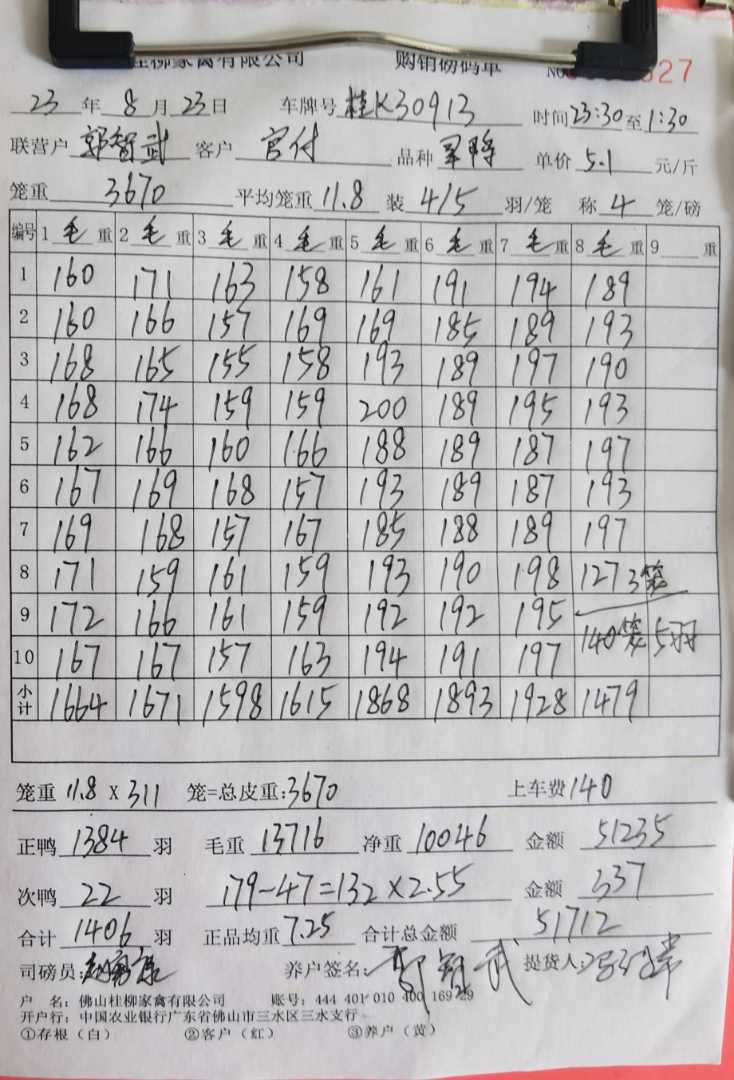 桂柳家禽有限公司 购销磅码单 NO 527
23 年 8 月 23 日 车牌号 桂K30913 时间 23:30 至 1:30
联营户 郭智武 客户 官付 品种 单价 5.1 元/斤
笼重 3670 平均笼重 11.8 装 4/5 羽/笼 称 4 笼/磅
编号 1 毛 重 2 毛 重 3 毛 重 4 毛 重 5 毛 重 6 毛 重 7 毛 重 8 毛 重 9 重
1 160 171 163 158 161 191 194 189
2 160 166 157 169 169 185 189 193
3 168 165 155 158 193 189 197 190
4 168 174 159 159 200 189 195 193
5 162 166 160 166 188 189 187 197
6 167 169 168 157 193 189 187 193
7 169 168 157 167 185 188 189 197
8 171 159 161 159 193 190 198 127 3笼
9 172 166 161 159 192 192 195 140笼5羽
10 167 167 157 163 194 191 197
小计 1664 1671 1598 1615 1868 1893 1928 1479
笼重 11.8 X 311 笼=总皮重:3670 上车费 140
正鸭 1384 羽 毛重 13716 净重 10046 金额 51235
次鸭 22 羽 179-47=132×2.55 金额 337
合计 1406 羽 正品均重 7.25 合计总金额 51712
司磅员: 养户签名: 郭智武 提货人:
户 名：佛山桂柳家禽有限公司 账号：444 401 010 400 169 29
开户行：中国农业银行广东省佛山市三水区三水支行
①存根（白） ②客户（红） ③养户（黄）